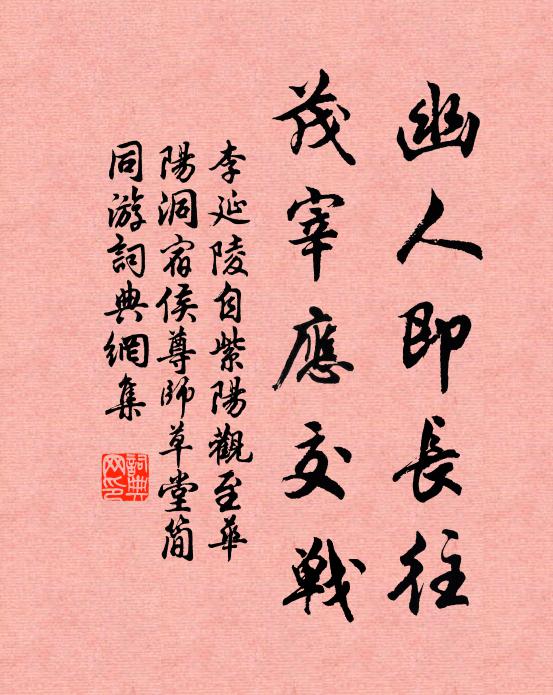 幽人即長往
茂宰應交戰
李延陵自紫陽觀至華
陽洞宿侯尊師草堂簡
同游詞典網集
詞典網印